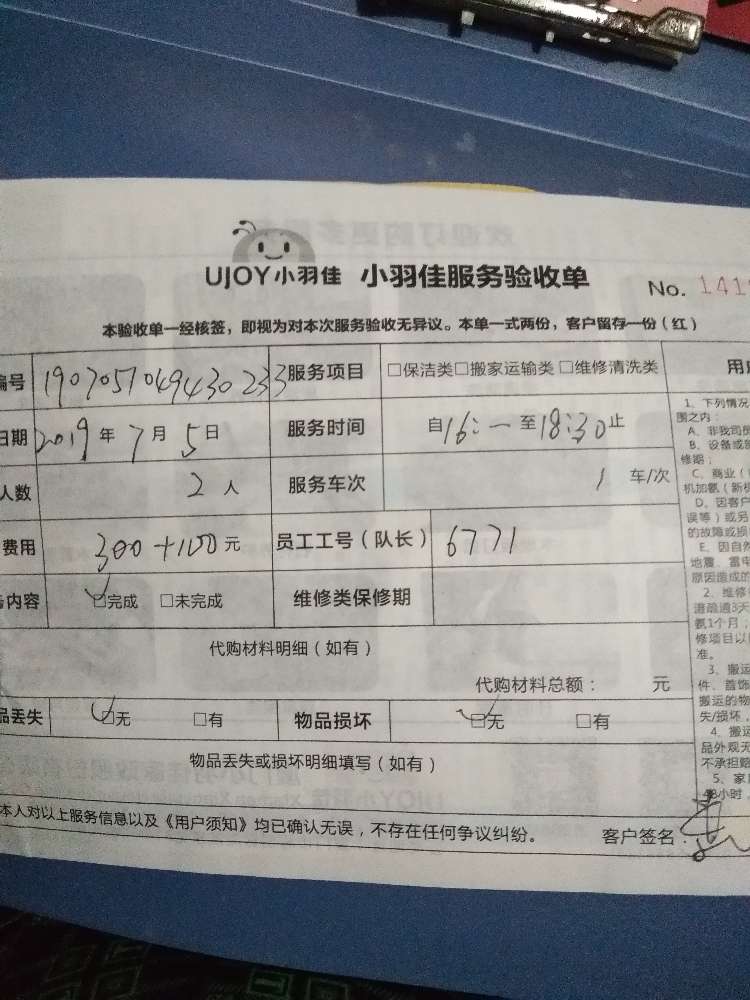 UJOY小羽佳 小羽佳服务验收单 No. 141
本验收单一经核签，即视为对本次服务验收无异议。本单一式两份，客户留存一份（红）
编号 1907051049430233 服务项目 □保洁类□搬家运输类□维修清洗类
日期 2019年7月5日 服务时间 自16:一至18:30止
人数 2人 服务车次 1 车/次
费用 300+100元 员工工号（队长） 6771
内容 ☑完成 □未完成 维修类保修期
代购材料明细（如有）
代购材料总额： 元
品丢失 ☑无 □有 物品损坏 ☑无 □有
物品丢失或损坏明细填写（如有）
本人对以上服务信息以及《用户须知》均已确认无误，不存在任何争议纠纷。 客户签名：
用户
1、下列情况
围之内：
A、非我司员
B、设备或部
修期；
C、商业（
机加氨（新机
D、因客户
误等）或另
的故障或损
E、因自然
地震、雷电
原因造成的
2、维修
道疏通3天
氨1个月；
修项目以
准。
3、搬运
件、首饰
搬运的物
失/损坏，
4、搬运
品外观无
不承担赔
5、家
48小时，